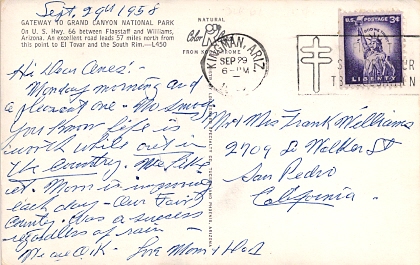 Sept. 29th 1958
GATEWAY TO GRAND CANYON NATIONAL PARK
On U. S. Hwy. 66 between Flagstaff and Williams,
Arizona. An excellent road leads 57 miles north from
this point to El Tovar and the South Rim.—L450
Hi Dear Ones:-
Monday morning and
a pleasant one - No Smog
You know life is
worth while out in
The Country.
yet - Mom is improving
each day - Our Fair
County - Was a success
regardless of rain -
We are O.K. - Love Mom & Dad
NATURAL
Color
FROM KODACHROME
KINGMAN, ARIZ.
SEP 29
6 - PM
U.S. POSTAGE 3¢
LIBERTY
Mr & Mrs Frank Williams
2709 S Walker St
San Pedro
California.